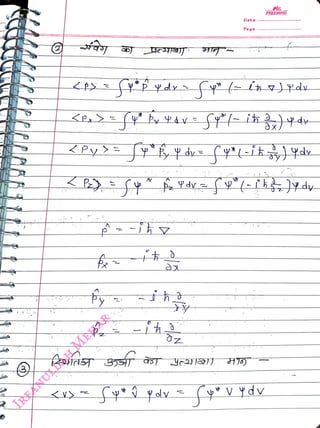 Date
Page
② संवेग का प्रत्याशा मान -
<p> = ∫ψ* p̂ ψ dv = ∫ψ* (-iħ ∇) ψ dv
<pₓ> = ∫ψ* p̂ₓ ψ dv = ∫ψ* (-iħ ∂/∂x) ψ dv
<py> = ∫ψ* p̂y ψ dv = ∫ψ* (-iħ ∂/∂y) ψ dv
<pz> = ∫ψ* p̂z ψ dv = ∫ψ* (-iħ ∂/∂z) ψ dv
p̂ = -iħ ∇
p̂ₓ = -iħ ∂/∂x
p̂y = -iħ ∂/∂y
p̂z = -iħ ∂/∂z
③ स्थितिज ऊर्जा का प्रत्याशा मान -
<v> = ∫ψ* v̂ ψ dv = ∫ψ* V ψ dv